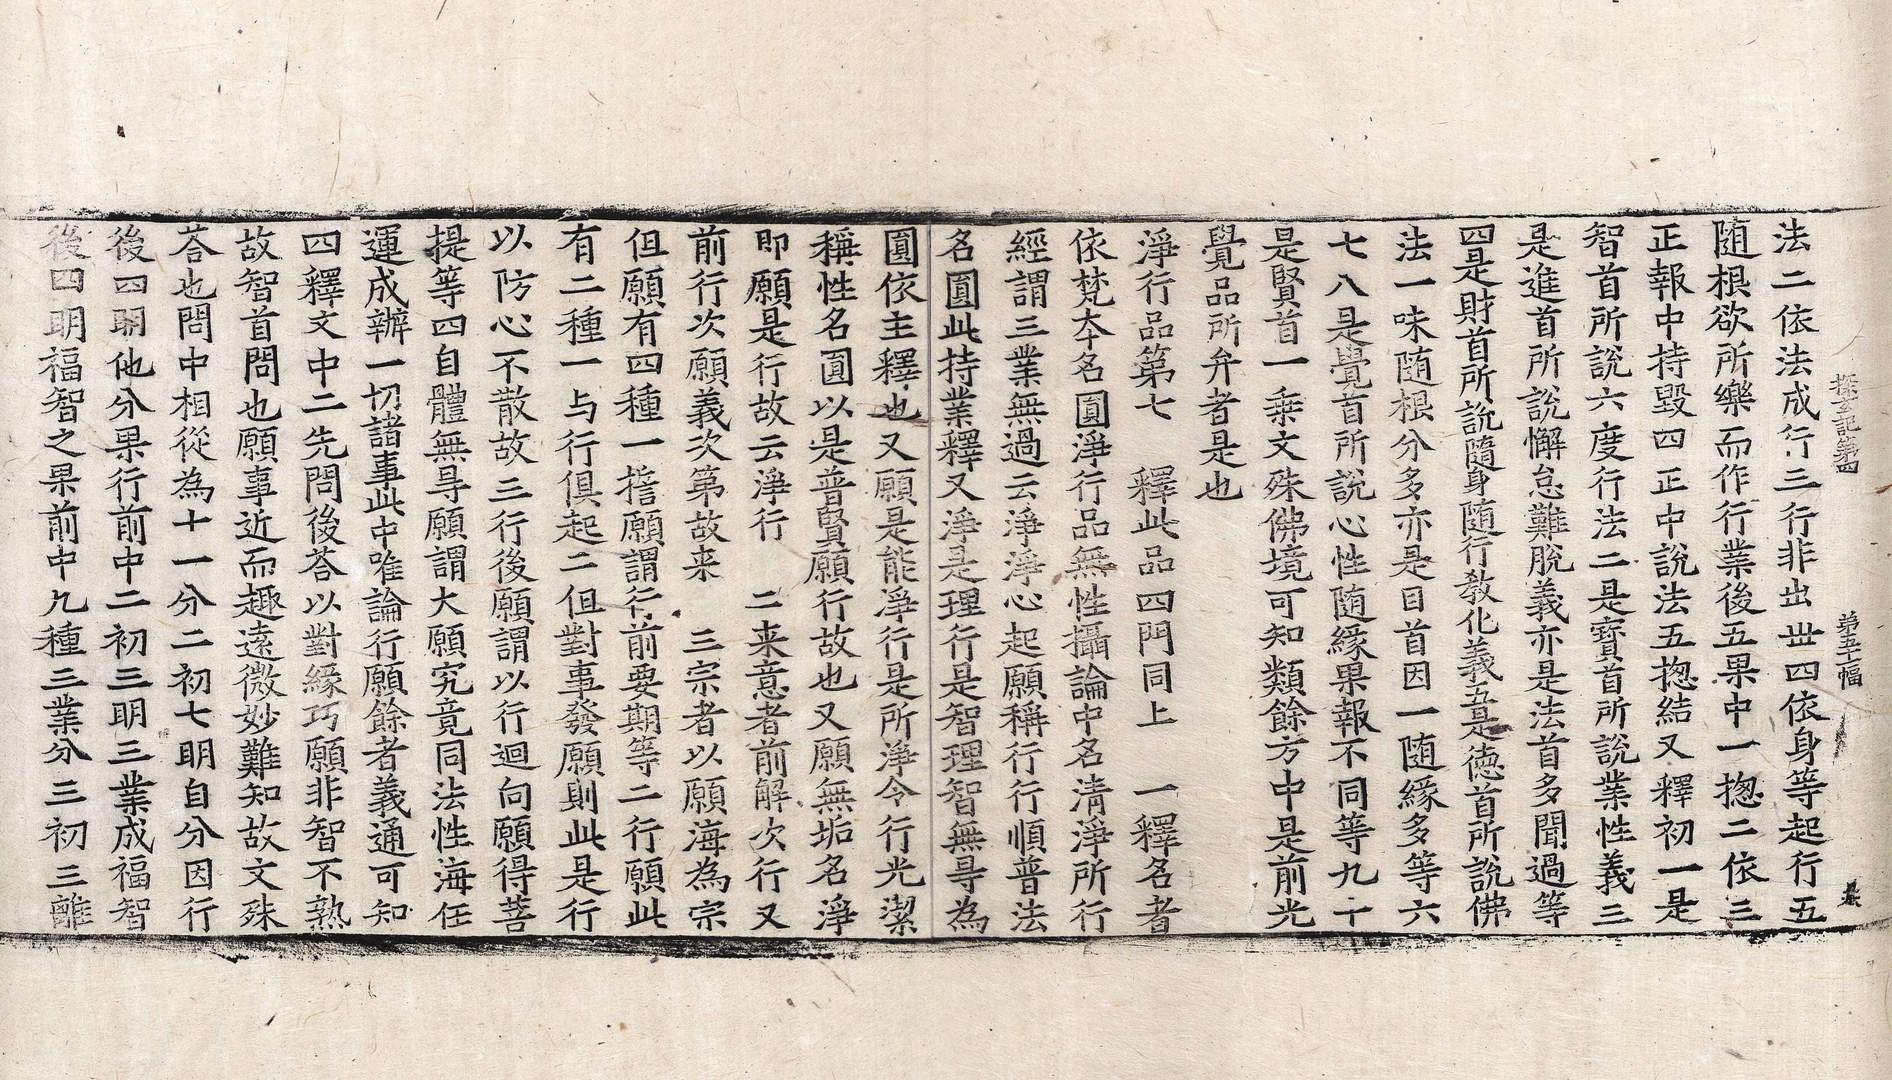 探玄記第四 第五十幅
法二依法成行三行非出世四依身等起行五
随根欲所樂而作行業後五果中一揔二依三
正報中持毀四正中說法五揔結又釋初一是
智首所說六度行法二是寶首所說業性義三
是進首所說懈怠難脫義亦是法首多聞過等
四是財首所說隨身随行教化義五是徳首所說佛
法一味随根分多亦是目首因一随緣多等六
七八是覺首所說心性随緣果報不同等九十
是賢首一乗文殊佛境可知類餘方中是前光
覺品所弁者是也
淨行品第七 釋此品四門同上 一釋名者
依梵本名圓淨行品無性攝論中名清淨所行
經謂三業無過云淨淨心起願稱行行順普法
名圓此持業釋又淨是理行是智理智無㝵為
圓依主釋也又願是能淨行是所淨令行光潔
稱性名圓以是普賢願行故也又願無垢名淨
即願是行故云淨行 二来意者前解次行又
前行次願義次第故来 三宗者以願海為宗
但願有四種一擔願謂行前要期等二行願此
有二種一与行俱起二但對事發願則此是行
以防心不散故三行後願謂以行迴向願得菩
提等四自體無㝵願謂大願究竟同法性海任
運成辦一切諸事此中唯論行願餘者義通可知
四釋文中二先問後荅以對緣巧願非智不熟
故智首問也願事近而趣遠微妙難知故文殊
荅也問中相從為十一分二初七明自分因行
後四明他分果行前中二初三明三業成福智
後四明福智之果前中九種三業分三初三離